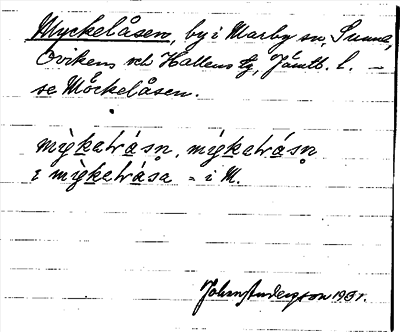 Myckelåsen, by i Marby sn, Sunne,
Ovikens och Hallens tg, Jämtl. l. –
se Möckelåsen.
mỳkelåsn, mýkelåsn
i mỳkelåsa = i M.
John Anderzson 1937.